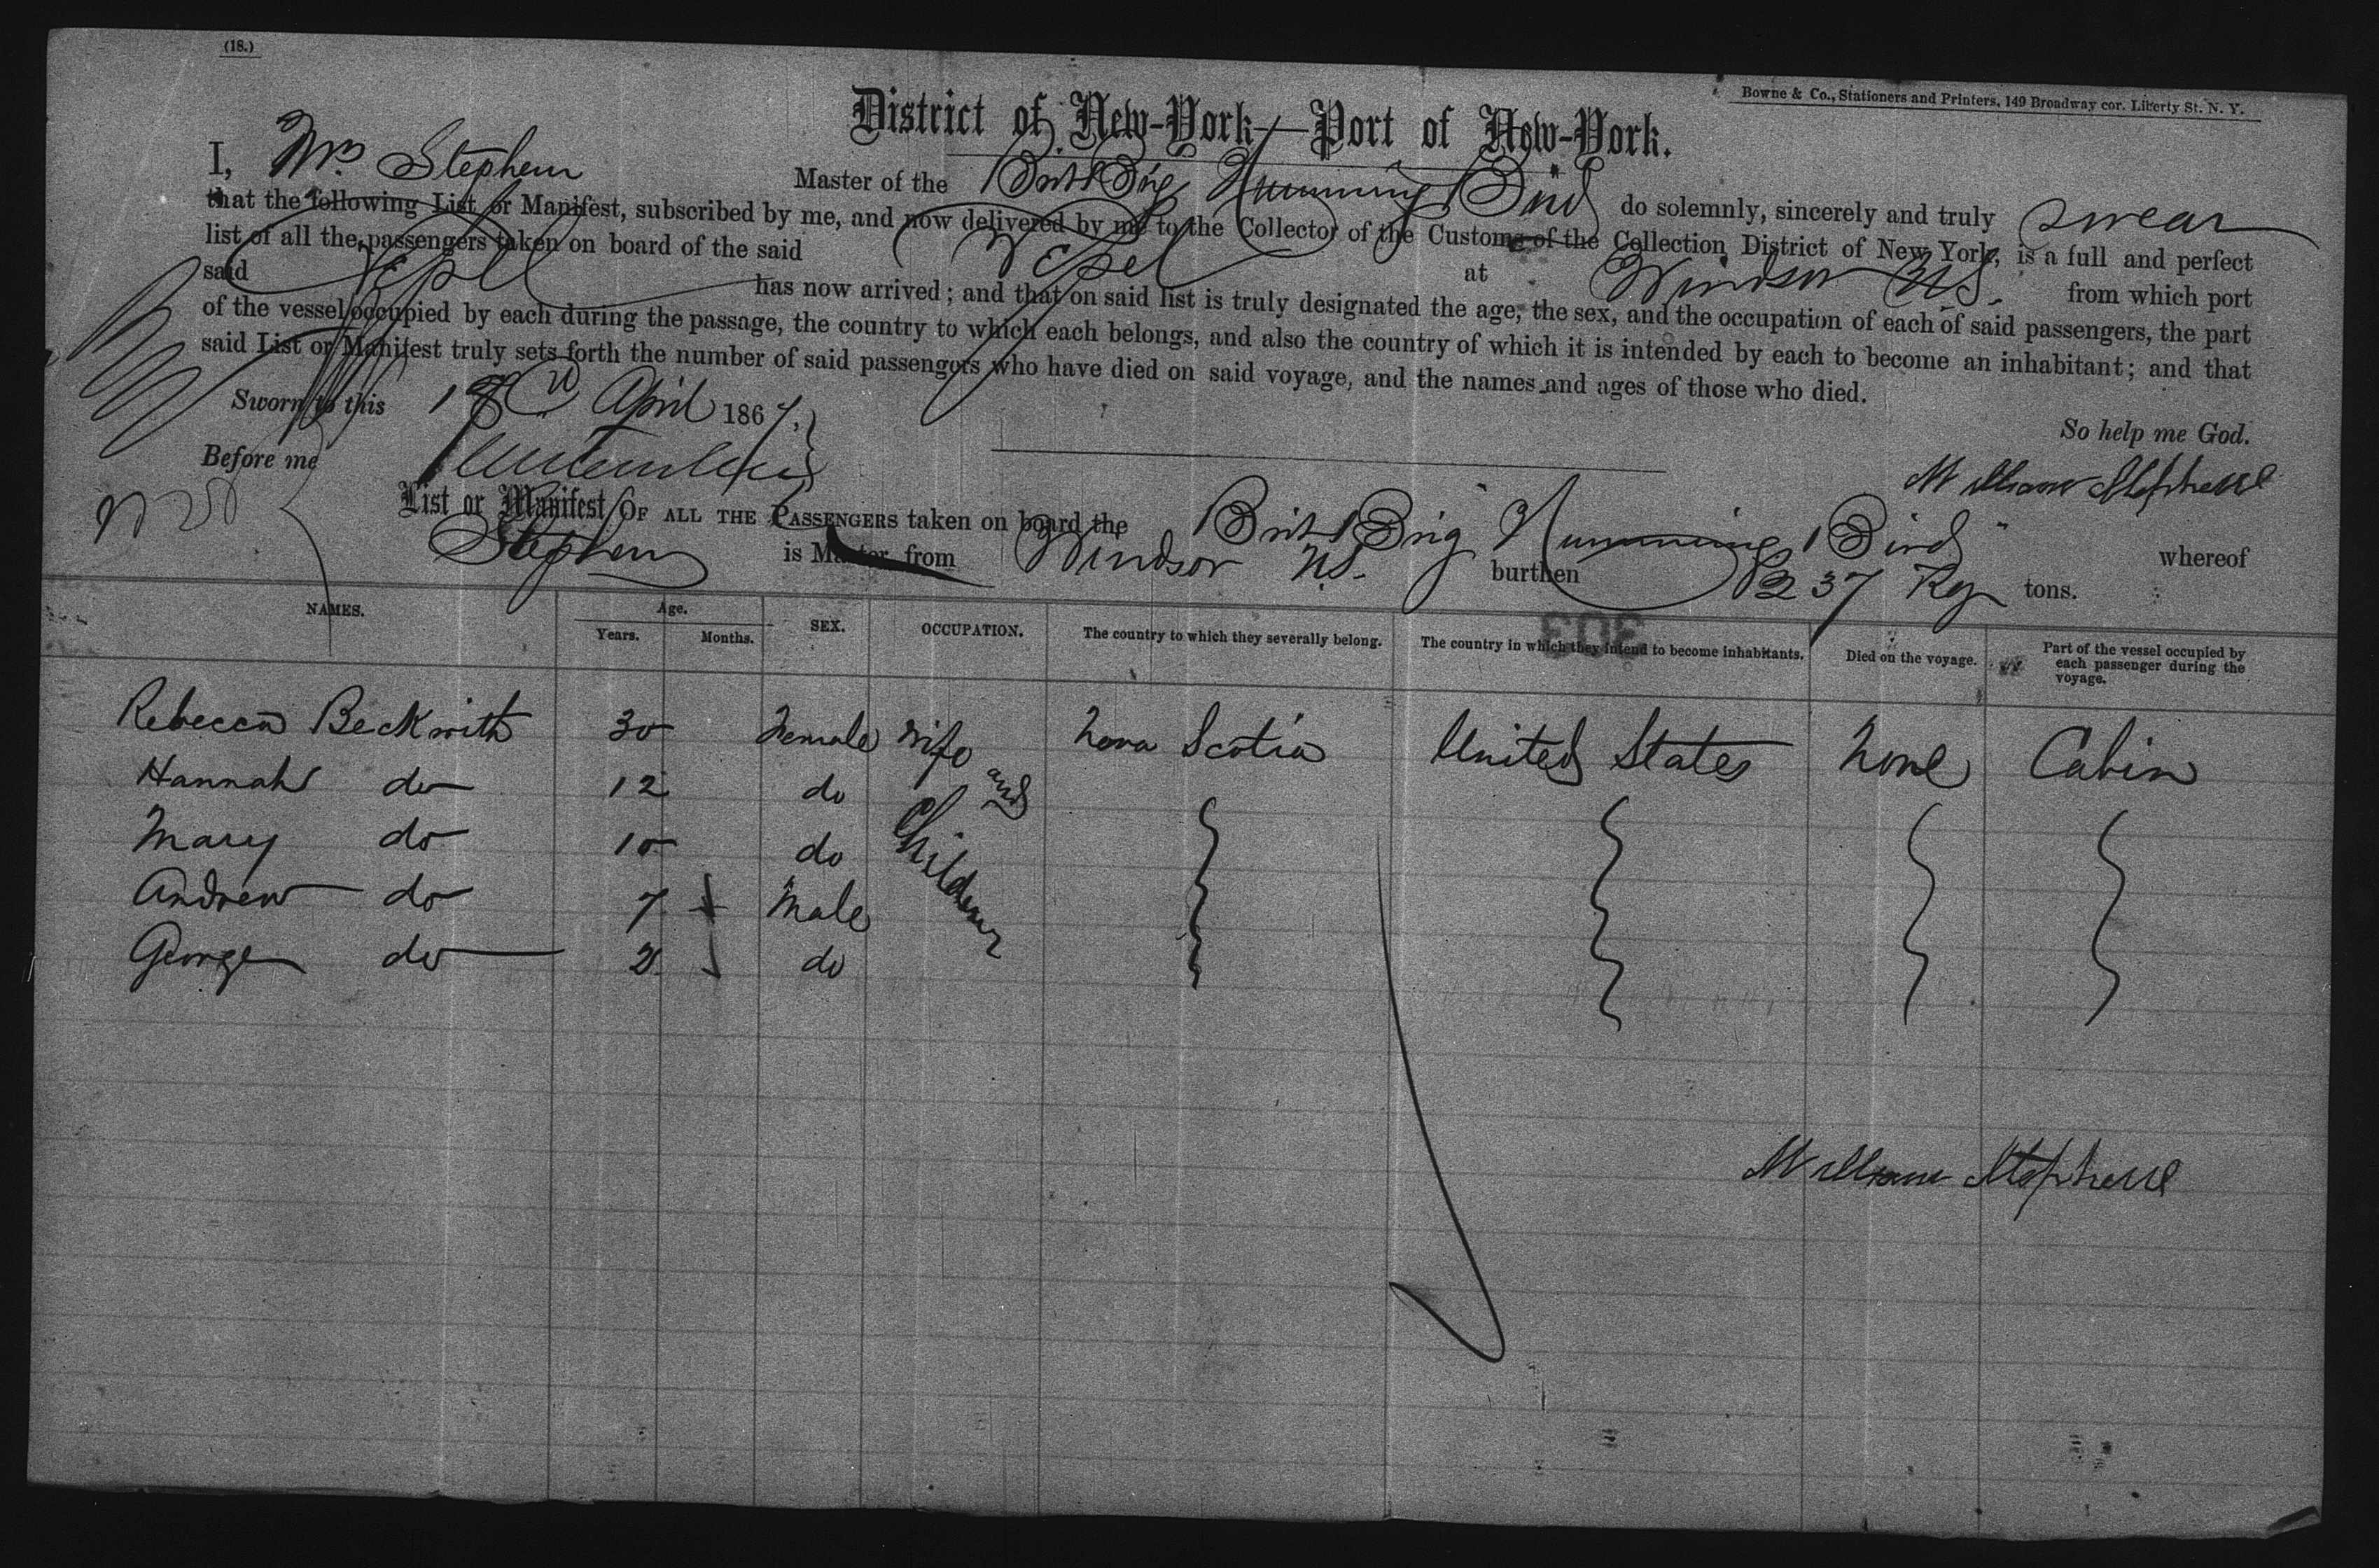 (18.)
Bowne & Co., Stationers and Printers, 149 Broadway cor. Liberty St. N. Y.
District of New-York—Port of New-York.
I, Wm Stephen Master of the Brit Brig Humming Bird do solemnly, sincerely and truly swear
that the following List or Manifest, subscribed by me, and now delivered by me to the Collector of the Customs of the Collection District of New York, is a full and perfect
list of all the passengers taken on board of the said Vessel at Windsor NS. from which port
said Vessel has now arrived; and that on said list is truly designated the age, the sex, and the occupation of each of said passengers, the part
of the vessel occupied by each during the passage, the country to which each belongs, and also the country of which it is intended by each to become an inhabitant; and that
said List or Manifest truly sets forth the number of said passengers who have died on said voyage, and the names and ages of those who died.
Sworn to this April 1867,
So help me God.
Before me
William Stephens
List or Manifest OF ALL THE PASSENGERS taken on board the Brit Brig Humming Bird whereof
Stephen is Master from Windsor N.S. burthen 237 Reg tons.
NAMES. Age. SEX. OCCUPATION. The country to which they severally belong. The country in which they intend to become inhabitants. Died on the voyage. Part of the vessel occupied by each passenger during the voyage.
Years. Months.
303
Rebecca Beckwith 30 Female wife Nova Scotia United States None Cabin
Hannah do 12 do and
Mary do 10 do Children
Andrew do 7 Male
George do 2 do
William Stephens